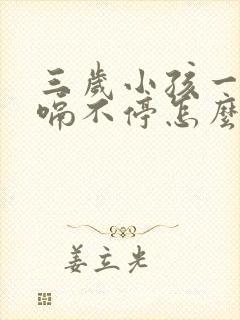 三歲小孩一
嗝不停怎麼
姜立光